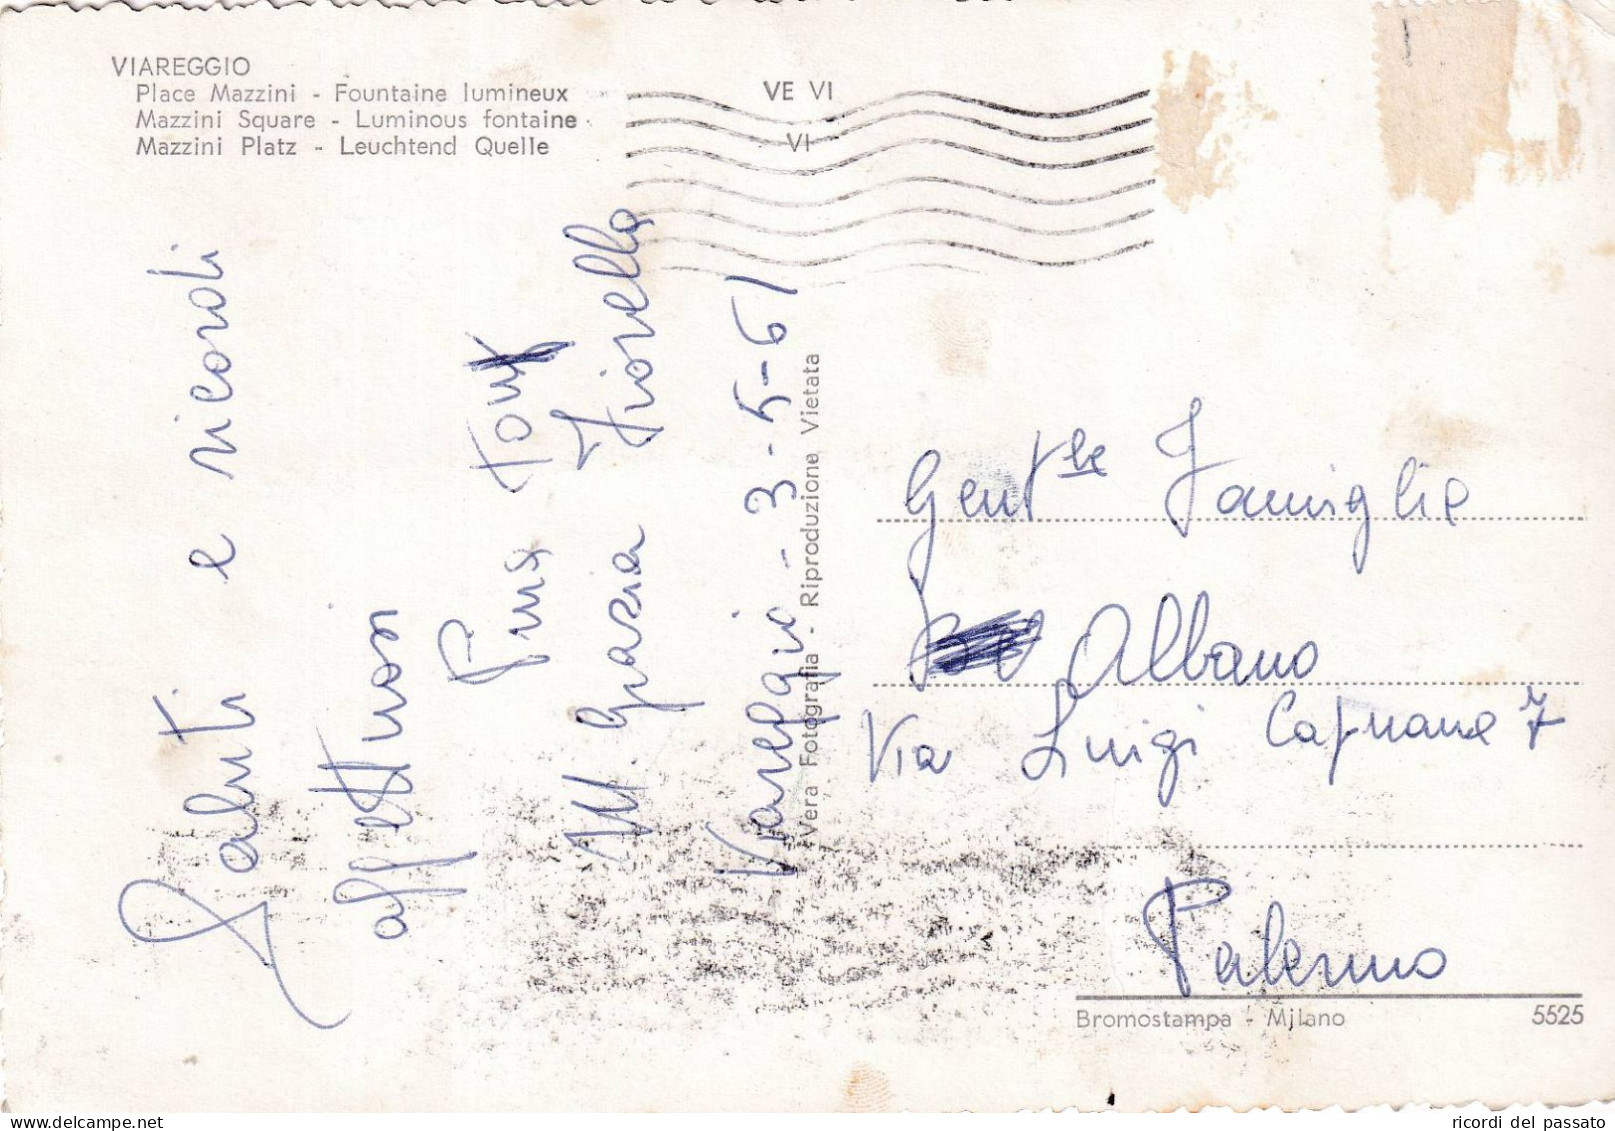 VIAREGGIO
Place Mazzini - Fountaine lumineux
Mazzini Square - Luminous fontaine
Mazzini Platz - Leuchtend Quelle
VE VI
VI
Saluti e ricordi
affettuosi
Pina
M. Grazia Fiorella
Viareggio - 3-5-61
Vera Fotografia - Riproduzione Vietata
Gent.le Famiglia
Albano
Via Luigi Capuana 7
Palermo
Bromostampa - Milano
5525
ricordi del passato